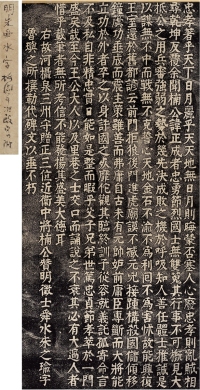 忠孝著乎天下日月麗乎天天地無日月則晦蒙否塞人心廢忠孝則亂賊相
尋乾坤反覆余聞楠公諱正成者忠勇節烈國士無雙蒐其行事不可概見大
抵公之用兵審強弱之勢於幾先決成敗之機於呼吸知人善任體士推誠是
以謀無不中而戰無不克誓心天地金石不渝不為利回不為害怵故能興復
王室還於舊都諺云前門拒狼後門進虎廟謨不臧元兇接踵構殺國儲傾移
鐘簴功垂成而震主策雖善而弗庸自古未有元帥妒前庸臣專斷而大將能
立功於外者卒之以身許國之死靡佗觀其臨終訓子從容就義託孤寄命言
不及私自非精忠貫日能如是整而暇乎父子兄弟世篤忠貞節孝萃於一門
盛矣哉至今王公大人以及里巷之士交口而誦說之不衰其必有大過人者
惜乎載筆者無所考信不能發揚其盛美大德耳
右故河攝泉三州守贈正三位近衛中將楠公贊明徵士舜水朱之瑜字
魯璵之所撰勒代碑文以垂不朽
明朱舜水字